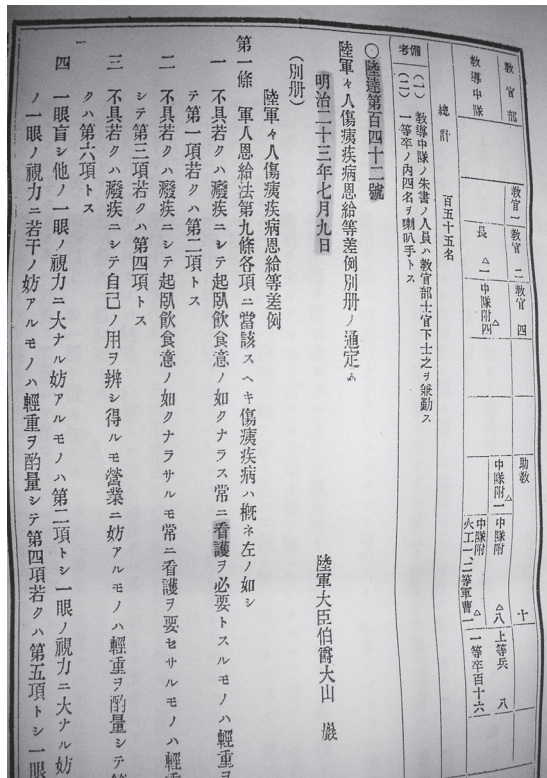 教官部
教官一
教官 二
教官 四
助教
十
教導中隊
長 △一
中隊附四△
中隊附一△
中隊附 △八
火工一、二等軍曹一
中隊附 △
上等兵 八
一等卒百十六
總計 百五十五名
備考
(一) 教導中隊ノ朱書ノ人員ハ教官部士官下士之ヲ兼勤ス
(二) 一等卒ノ內四名ヲ喇叭手トス
〇陸達第百四十二號
陸軍々人傷痍疾病恩給等差例別册ノ通定ム
明治二十三年七月九日
陸軍大臣伯爵大山 巖
(別册)
陸軍々人傷痍疾病恩給等差例
第一條 軍人恩給法第九條各項ニ當該スヘキ傷痍疾病ハ槪ネ左ノ如シ
一 不具若クハ癈疾ニシテ起臥飮食意ノ如クナラス常ニ看護ヲ必要トスルモノハ輕重ヲ
テ第一項若クハ第二項トス
二 不具若クハ癈疾ニシテ起臥飮食意ノ如クナラサルモ常ニ看護ヲ要セサルモノハ輕重
シテ第三項若クハ第四項トス
三 不具若クハ癈疾ニシテ自己ノ用ヲ辨シ得ルモ營業ニ妨アルモノハ輕重ヲ酌量シテ第
クハ第六項トス
四 一眼盲シ他ノ一眼ノ視力ニ大ナル妨アルモノハ第二項トシ一眼ノ視力ニ大ナル妨
ノ一眼ノ視力ニ若干ノ妨アルモノハ輕重ヲ酌量シテ第四項若クハ第五項トシ一眼